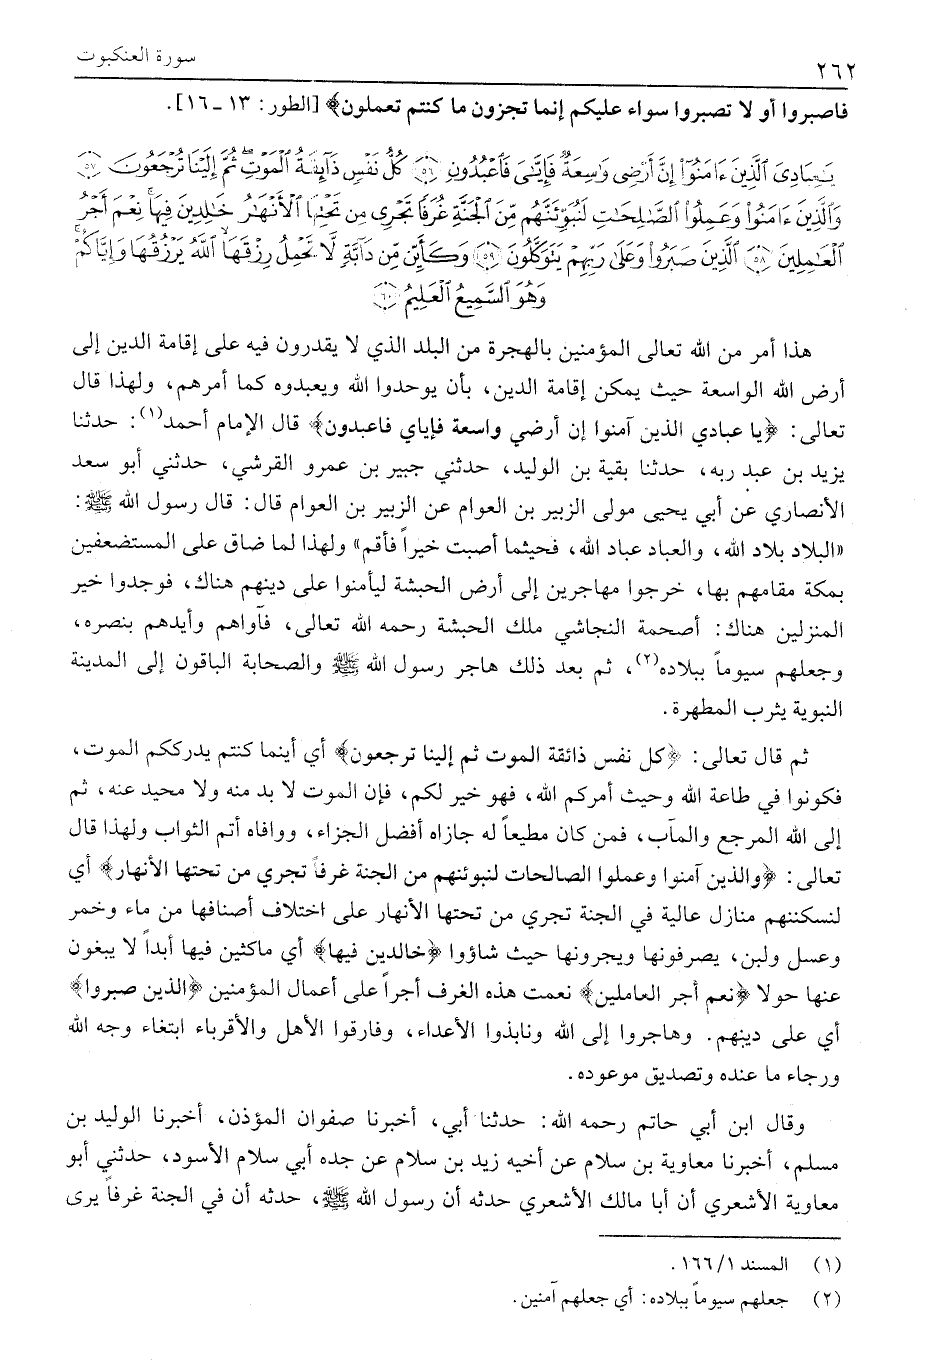 ٢٦٢ سورة العنكبوت
فاصبروا أو لا تصبروا سواء عليكم إنما تجزون ما كنتم تعملون﴾ [الطور: ١٣ ـ ١٦].
يَٰعِبَادِىَ ٱلَّذِينَ ءَامَنُوٓا۟ إِنَّ أَرْضِى وَٰسِعَةٌ فَإِيَّٰىَ فَٱعْبُدُونِ ﴿٥٦﴾ كُلُّ نَفْسٍ ذَآئِقَةُ ٱلْمَوْتِ ثُمَّ إِلَيْنَا تُرْجَعُونَ ﴿٥٧﴾
وَٱلَّذِينَ ءَامَنُوا۟ وَعَمِلُوا۟ ٱلصَّٰلِحَٰتِ لَنُبَوِّئَنَّهُم مِّنَ ٱلْجَنَّةِ غُرَفًا تَجْرِى مِن تَحْتِهَا ٱلْأَنْهَٰرُ خَٰلِدِينَ فِيهَا نِعْمَ أَجْرُ
ٱلْعَٰمِلِينَ ﴿٥٨﴾ ٱلَّذِينَ صَبَرُوا۟ وَعَلَىٰ رَبِّهِمْ يَتَوَكَّلُونَ ﴿٥٩﴾ وَكَأَيِّن مِّن دَآبَّةٍ لَّا تَحْمِلُ رِزْقَهَا ٱللَّهُ يَرْزُقُهَا وَإِيَّاكُمْ
وَهُوَ ٱلسَّمِيعُ ٱلْعَلِيمُ ﴿٦٠﴾
هذا أمر من الله تعالى المؤمنين بالهجرة من البلد الذي لا يقدرون فيه على إقامة الدين إلى
أرض الله الواسعة حيث يمكن إقامة الدين، بأن يوحدوا الله ويعبدوه كما أمرهم، ولهذا قال
تعالى: ﴿يا عبادي الذين آمنوا إن أرضي واسعة فإياي فاعبدون﴾ قال الإمام أحمد(١): حدثنا
يزيد بن عبد ربه، حدثنا بقية بن الوليد، حدثني جبير بن عمرو القرشي، حدثني أبو سعد
الأنصاري عن أبي يحيى مولى الزبير بن العوام عن الزبير بن العوام قال: قال رسول الله ﷺ:
«البلاد بلاد الله، والعباد عباد الله، فحيثما أصبت خيراً فأقم» ولهذا لما ضاق على المستضعفين
بمكة مقامهم بها، خرجوا مهاجرين إلى أرض الحبشة ليأمنوا على دينهم هناك، فوجدوا خير
المنزلين هناك: أصحمة النجاشي ملك الحبشة رحمه الله تعالى، فآواهم وأيدهم بنصره،
وجعلهم سيوماً ببلاده(٢)، ثم بعد ذلك هاجر رسول الله ﷺ والصحابة الباقون إلى المدينة
النبوية يثرب المطهرة.
ثم قال تعالى: ﴿كل نفس ذائقة الموت ثم إلينا ترجعون﴾ أي أينما كنتم يدرككم الموت،
فكونوا في طاعة الله وحيث أمركم الله، فهو خير لكم، فإن الموت لا بد منه ولا محيد عنه، ثم
إلى الله المرجع والمآب، فمن كان مطيعاً له جازاه أفضل الجزاء، ووافاه أتم الثواب ولهذا قال
تعالى: ﴿والذين آمنوا وعملوا الصالحات لنبوئنهم من الجنة غرفاً تجري من تحتها الأنهار﴾ أي
لنسكننهم منازل عالية في الجنة تجري من تحتها الأنهار على اختلاف أصنافها من ماء وخمر
وعسل ولبن، يصرفونها ويجرونها حيث شاؤوا ﴿خالدين فيها﴾ أي ماكثين فيها أبداً لا يبغون
عنها حولا ﴿نعم أجر العاملين﴾ نعمت هذه الغرف أجراً على أعمال المؤمنين ﴿الذين صبروا﴾
أي على دينهم. وهاجروا إلى الله ونابذوا الأعداء، وفارقوا الأهل والأقرباء ابتغاء وجه الله
ورجاء ما عنده وتصديق موعوده.
وقال ابن أبي حاتم رحمه الله: حدثنا أبي، أخبرنا صفوان المؤذن، أخبرنا الوليد بن
مسلم، أخبرنا معاوية بن سلام عن أخيه زيد بن سلام عن جده أبي سلام الأسود، حدثني أبو
معاوية الأشعري أن أبا مالك الأشعري حدثه أن رسول الله ﷺ، حدثه أن في الجنة غرفاً يرى
(١) المسند ١/ ١٦٦.
(٢) جعلهم سيوماً ببلاده: أي جعلهم آمنين.